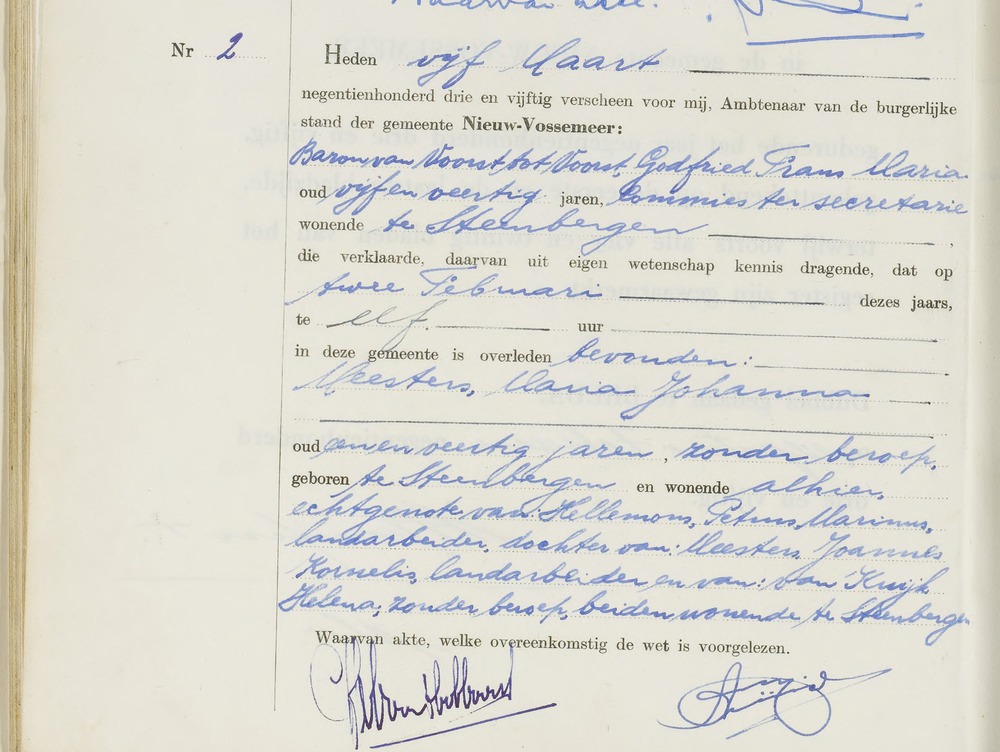 Waarvan akte.
Nr 2
Heden vijf Maart
negentienhonderd drie en vijftig verscheen voor mij, Ambtenaar van de burgerlijke
stand der gemeente Nieuw-Vossemeer:
Baron van Voorst tot Voorst, Godfried Frans Maria
oud vijfenveertig jaren, Commies ter secretarie
wonende te Steenbergen ,
die verklaarde, daarvan uit eigen wetenschap kennis dragende, dat op
twee Februari dezes jaars,
te elf uur
in deze gemeente is overleden bevonden:
Meesters, Maria Johanna
oud eenenveertig jaren, zonder beroep,
geboren te Steenbergen en wonende alhier,
echtgenote van: Hellemons, Petrus, Marinus,
landarbeider, dochter van: Meesters, Joannes
Kornelis, landarbeider, en van: van 'Kuijk
Helena, zonder beroep, beiden wonende te Steenbergen
Waarvan akte, welke overeenkomstig de wet is voorgelezen.